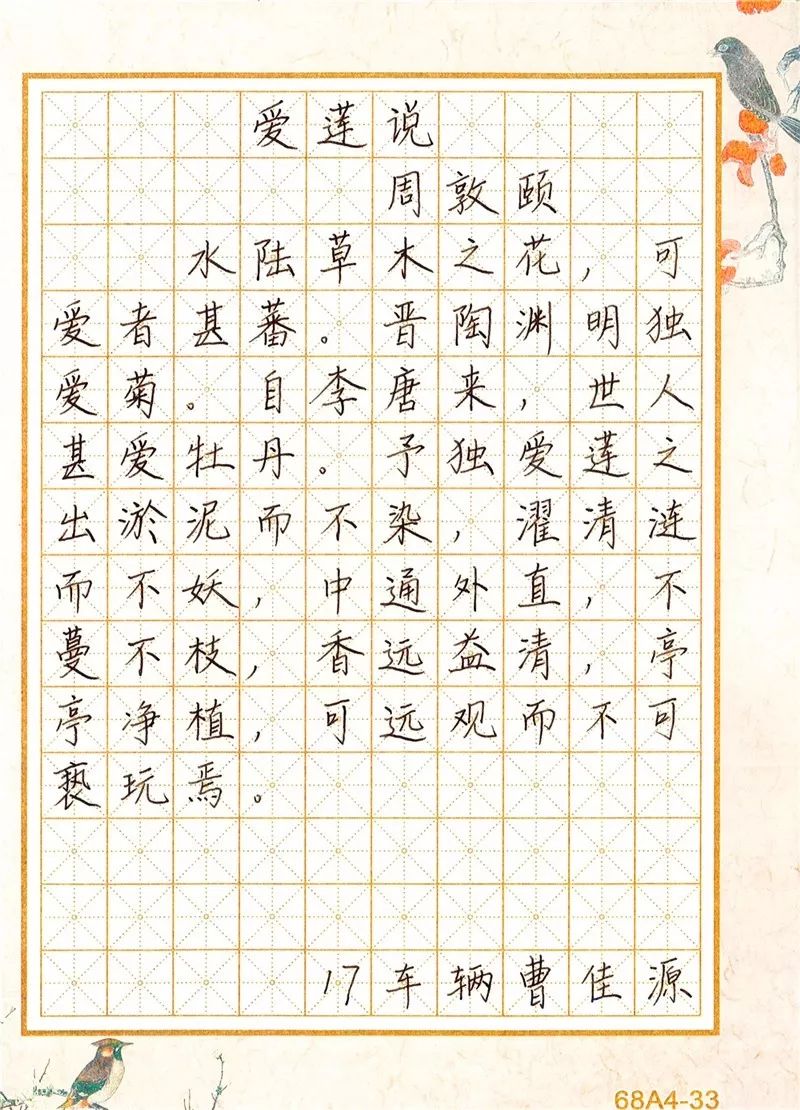 爱莲说
周敦颐
水陆草木之花，可
爱者甚蕃。晋陶渊明独
爱菊。自李唐来，世人
甚爱牡丹。予独爱莲之
出淤泥而不染，濯清涟
而不妖，中通外直，不
蔓不枝，香远益清，亭
亭净植，可远观而不可
亵玩焉。
17车辆曹佳源
68A4-33